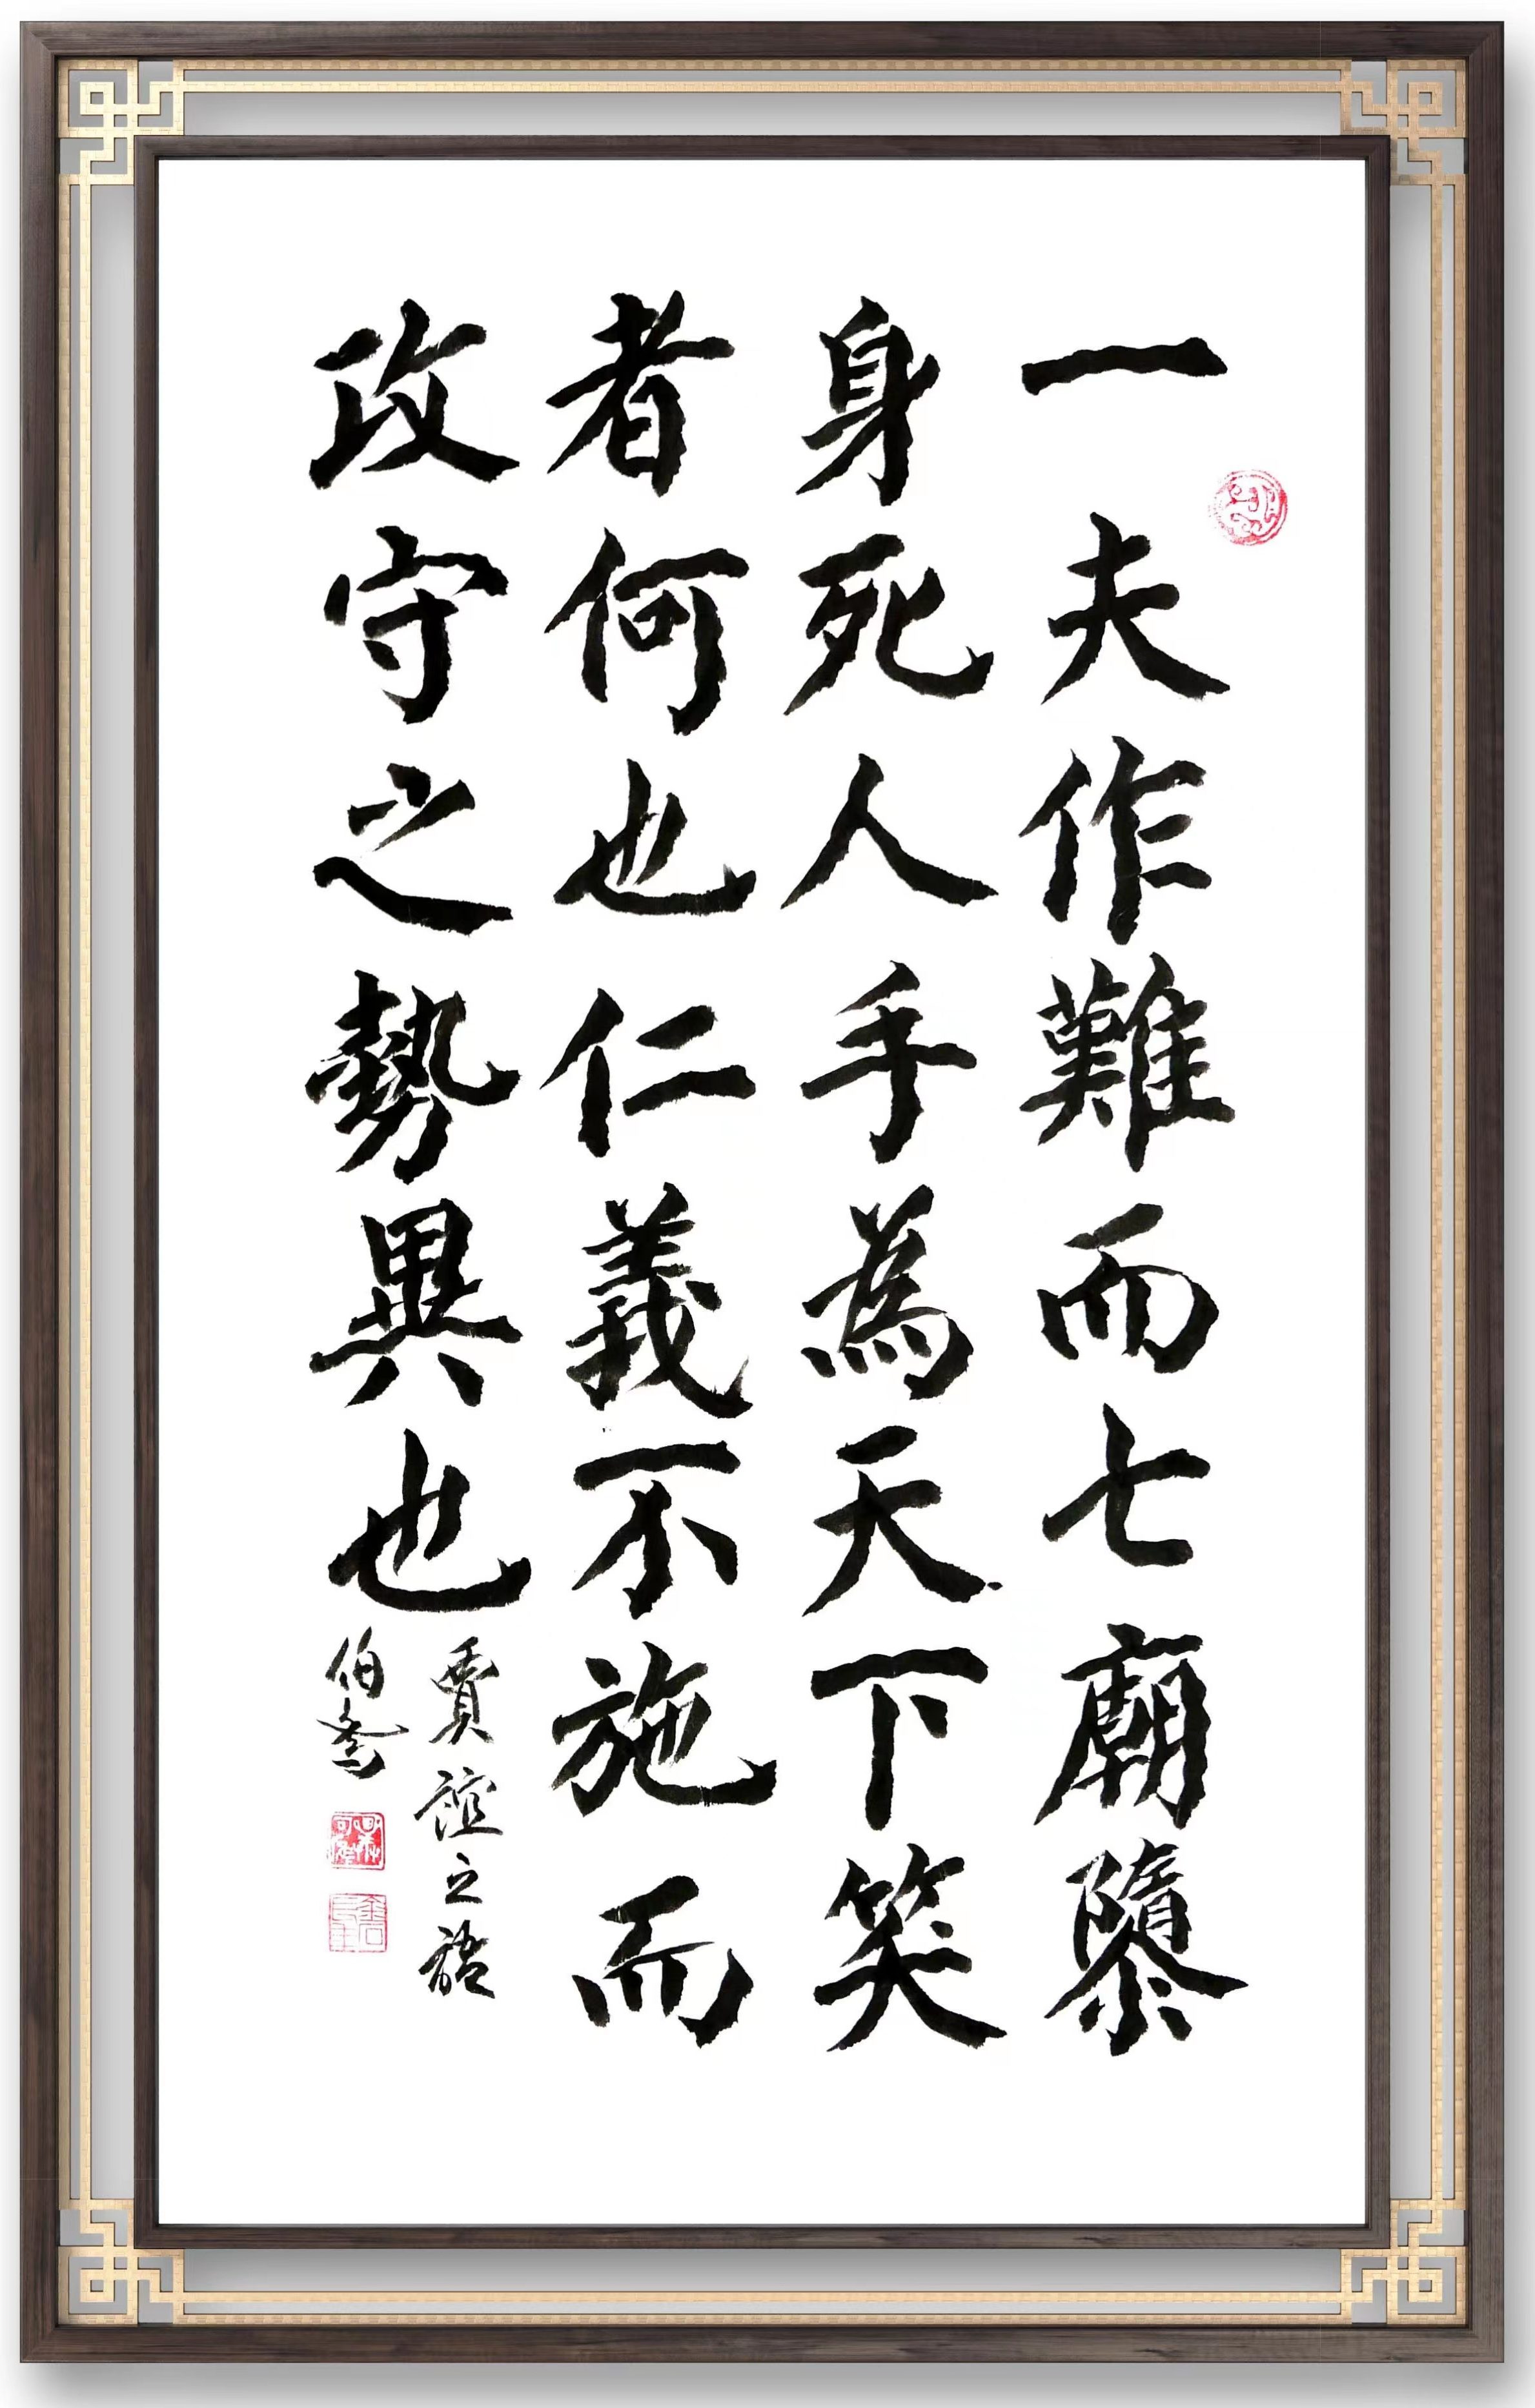 一夫作難而七廟隳
身死人手為天下笑
者何也仁義不施而
攻守之勢異也
賈誼之語
伯喬